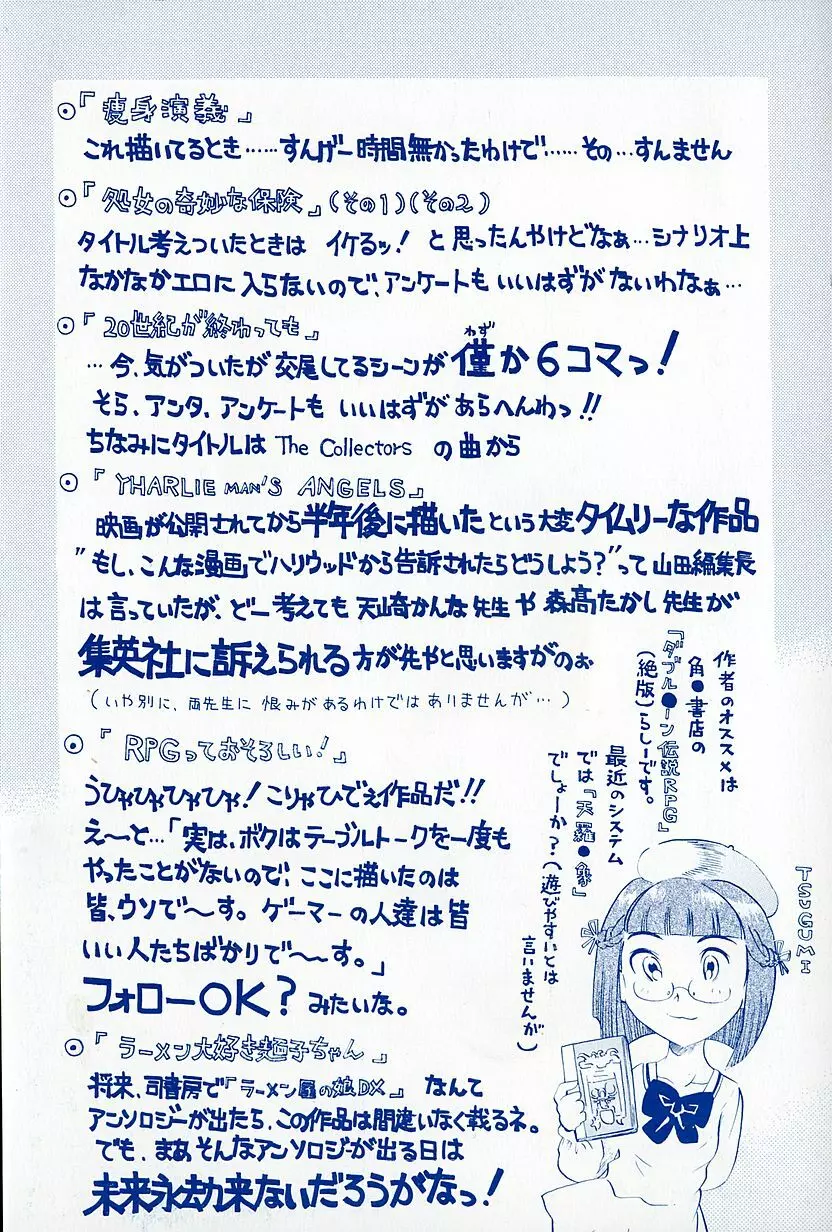 ◉『痩身演義』
これ描いてるとき……すんげー時間無かったわけで……その…すんません
◉『処女の奇妙な保険』(その1)(その2)
タイトル考えついたときは イケるッ! と思ったんやけどなぁ…シナリオ上
なかなかエロに入らないので、アンケートもいいはずがないわなぁ…
◉『20世紀が終わっても』
…今、気がついたが交尾してるシーンが僅か6コマっ!
わず
そら、アンタ、アンケートもいいはずがあらへんわっ!!
ちなみにタイトルは The Collectors の曲から
◉『YHARLIE MAN'S ANGELS』
映画が公開されてから半年後に描いたという大変タイムリーな作品
"もし、こんな漫画でハリウッドから告訴されたらどうしよう?"って山田編集長
は言っていたが、どー考えても天崎かんな先生や森高たかし先生が
集英社に訴えられる方が先やと思いますがのぉ
(いや別に、両先生に恨みがあるわけではありませんが…)
◉『RPGっておそろしい!』
うひゃひゃひゃひゃ!こりゃひでぇ作品だ!!
え〜と…「実は、ボクはテーブルトークを一度も
やったことがないので、ここに描いたのは
皆、ウソで〜す。ゲーマーの人達は皆
いい人たちばかりで〜〜す。」
フォローOK?みたいな。
◉『ラーメン大好き麺子ちゃん』
将来、司書房で『ラーメン屋の娘DX』なんて
アンソロジーが出たら、この作品は間違いなく載るネ。
でも、まぁそんなアンソロジーが出る日は
未来永劫来ないだろうがなっ!
作者のオススメは
角●書店の
『ダブル●ーン伝説RPG』
(絶版)らしーです。
最近のシステム
では『天羅●象』
でしょーか?(遊びやすいとは
言いませんが)
TSUGUMI